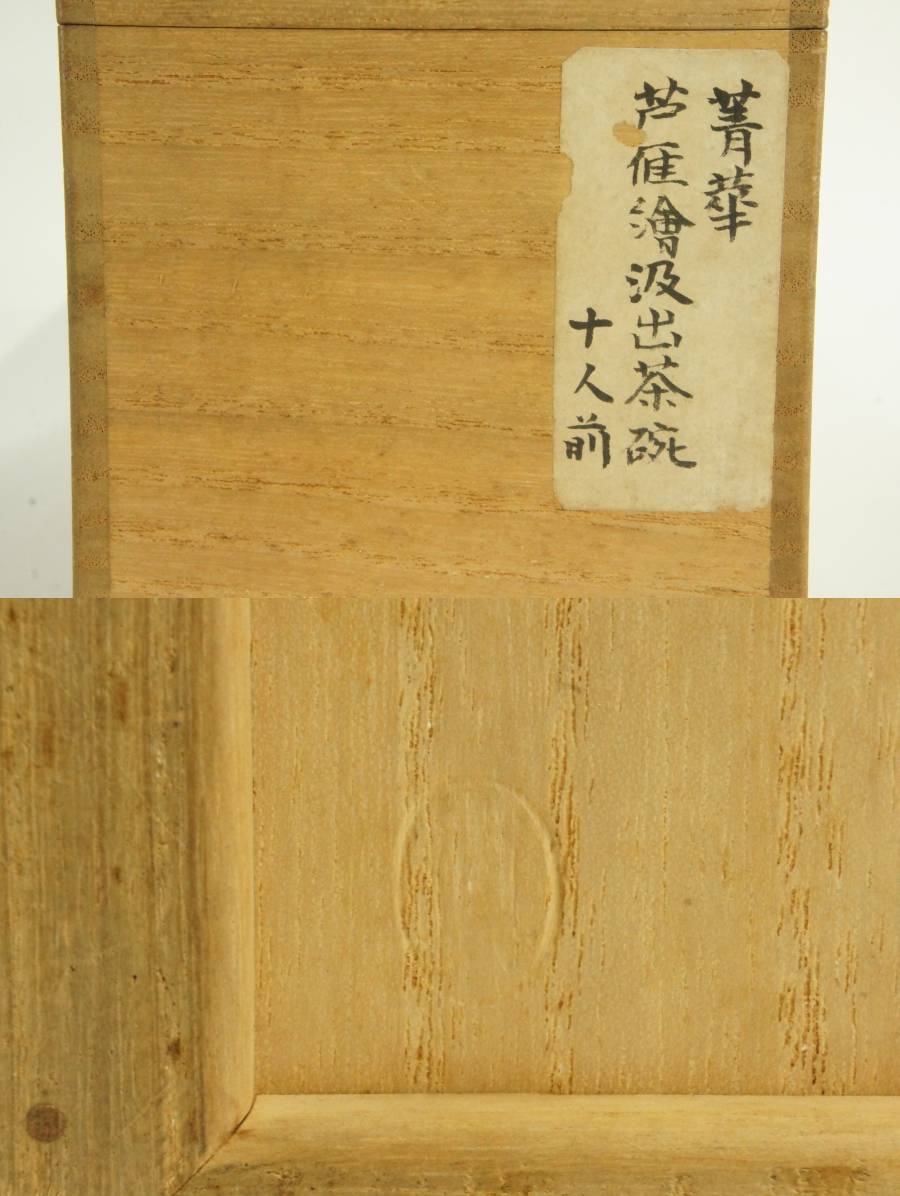 菁華
芦雁繪汲出茶碗
十人前